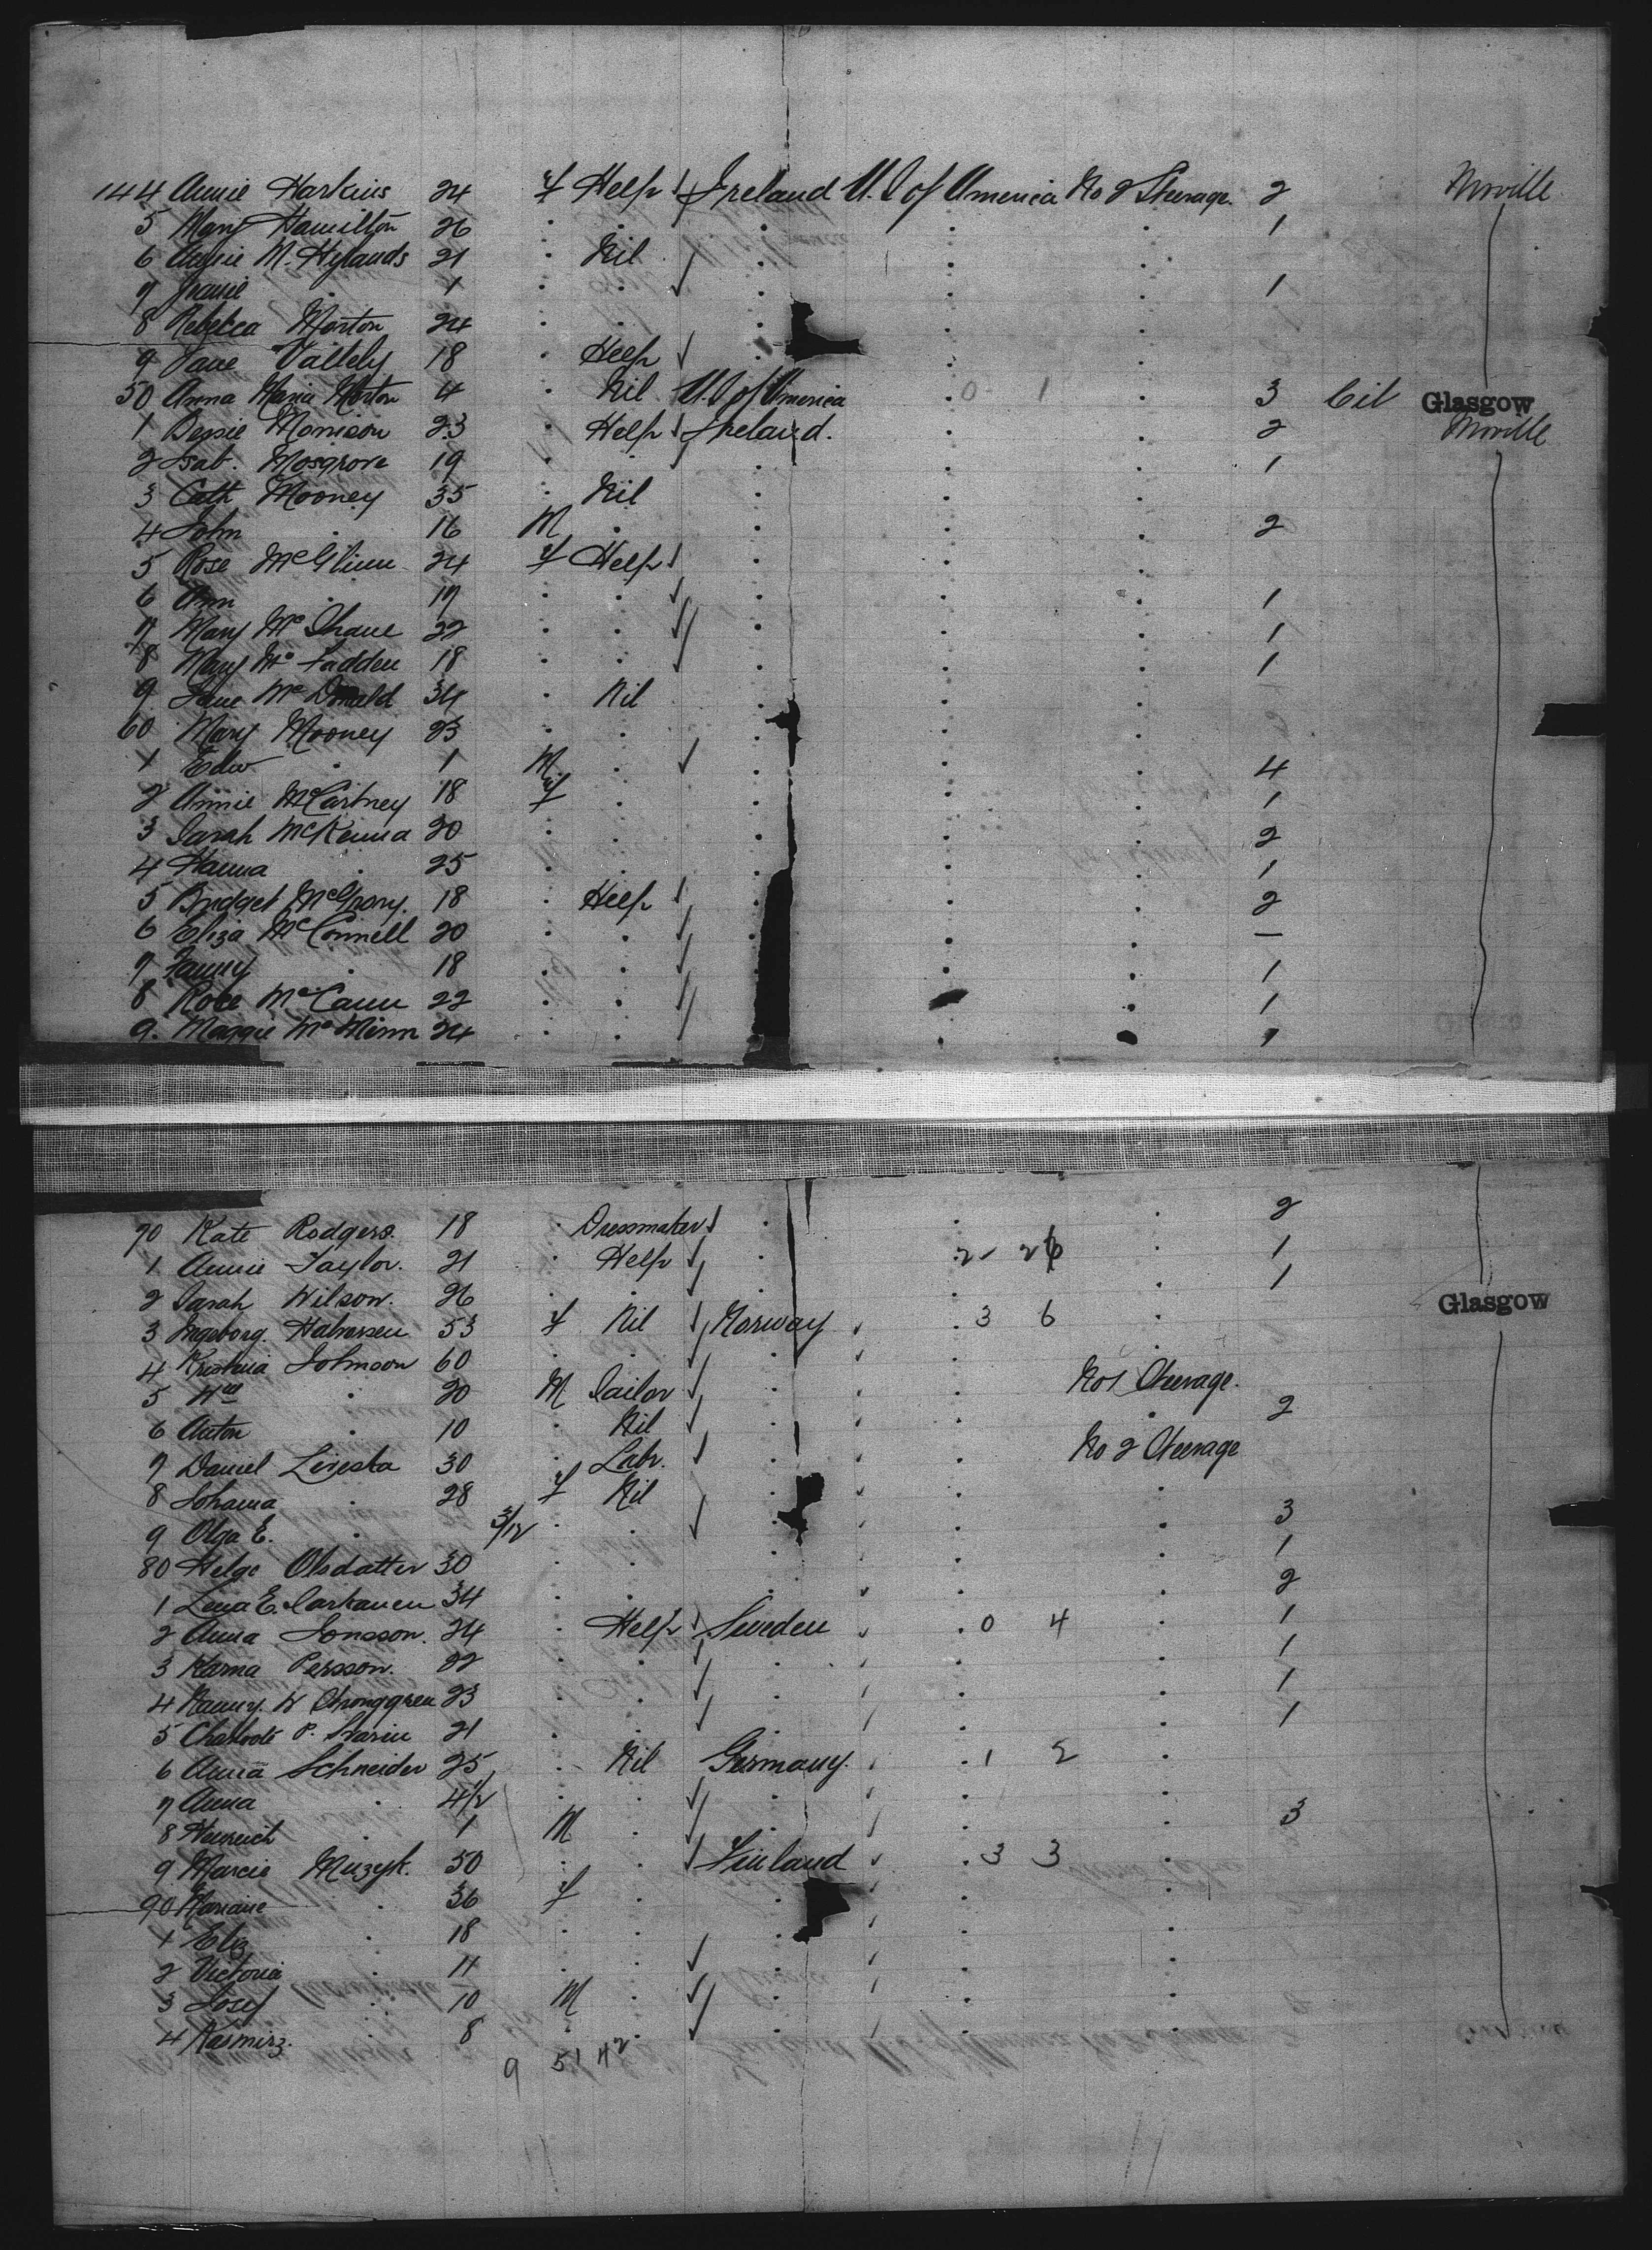 144 Annie Harkins 24 f Help Ireland U.S of America No 2 Steerage. 2 Moville
5 Mary Hamilton 26 . . . . . 1
6 Annie M. Hylands 21 . Nil . . .
7 . 1 . . . . . 1
8 Rebecca Morton 24 . . . . .
9 Jane Vallely 18 . Help . . .
50 Anna Maria Morton 4 . Nil U.S of America . 0 1 . 3 Cit Glasgow
1 Bessie Morrison 23 . Help Ireland. . . 2 Moville
2 Isab. Mosgrove 19 . . . . . 1
3 Cath Mooney 35 . Nil . . .
4 John . 16 M . . . . 2
5 Rose McGlinn 24 f Help . . .
6 Ann . 17 . . . . . 1
7 Mary McShane 22 . . . . . 1
8 Mary McFadden 18 . . . . . 1
9 Jane McDonald 34 . Nil . . .
60 Mary Mooney 23 . . . . .
1 Edw . 1 M . . . . 4
2 Annie McCartney 18 f . . . . 1
3 Sarah McKenna 20 . . . . . 2
4 Hanna . 25 . . . . . 1
5 Bridget McGrory. 18 . Help . . . 2
6 Eliza McConnell 20 . . . . . —
7 Fanny . 18 . . . . . 1
8 Rose McCann 22 . . . . . 1
9. Maggie McMinn 24 . . . . . 1
70 Kate Rodgers. 18 . Dressmaker . . . 2
1 Annie Taylor. 21 . Help . . 2 26 . 1
2 Sarah Wilson. 26 . . . . . 1
3 Ingeborg. Halvorsen 53 f Nil Norway . 3 6 . Glasgow
4 Johnson 60 . . . . .
5 . 20 M Sailor . . No 1 Steerage.
6 Anton . 10 . Nil . . . 2
7 Daniel 30 . Labr. . . No 2 Steerage
8 Johanna . 28 f Nil . . .
9 Olga E. . 3/12 . . . . . 3
80 Helge Olsdatter 30 . . . . . 1
1 Lena E. 34 . . . . . 2
2 Anna Jonsson. 24 . Help Sweden . 0 4 . 1
3 Karna Persson. 22 . . . . . 1
4 23 . . . . . 1
5 21 . . . . . 1
6 Anna Schneider 25 . Nil Germany. . 1 2 .
7 Anna . 4 1/2 . . . . .
8 Heinrich . 1 M . . . . 3
9 Marcie Muzyk. 50 . . Finland . 3 3 .
90 Mariane . 36 f . . . .
1 Eliz . 18 . . . . .
2 Victoria . 11 . . . . .
3 Josef . 10 M . . . .
4 Kasmirz. . 8 . . . . .
9 51 42